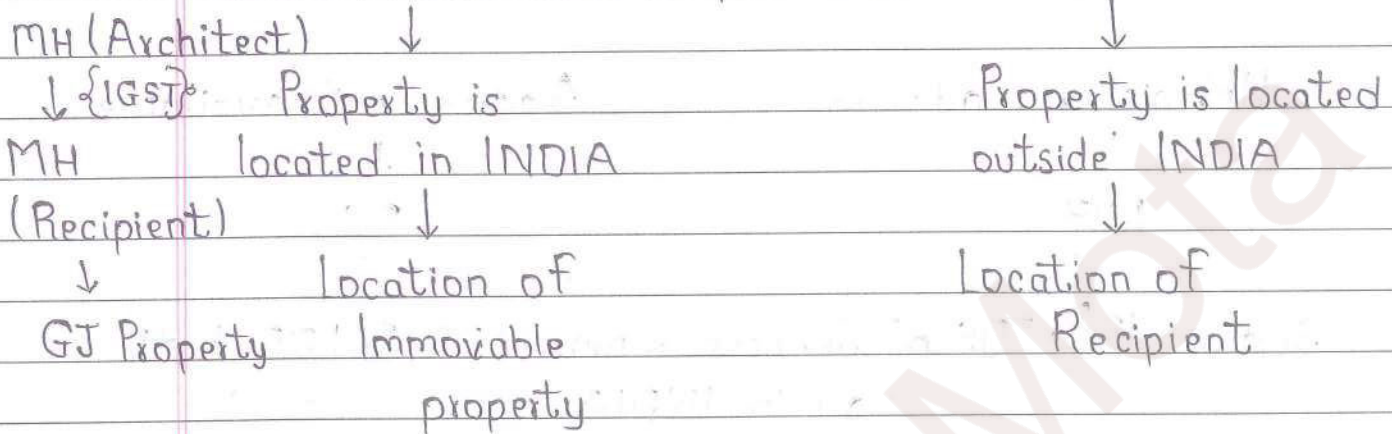 MH (Architect) ↓ ↓
↓ {IGST} Property is Property is located
MH located in INDIA outside INDIA
(Recipient) ↓ ↓
↓ Location of Location of
GJ Property Immovable Recipient
property
Mota